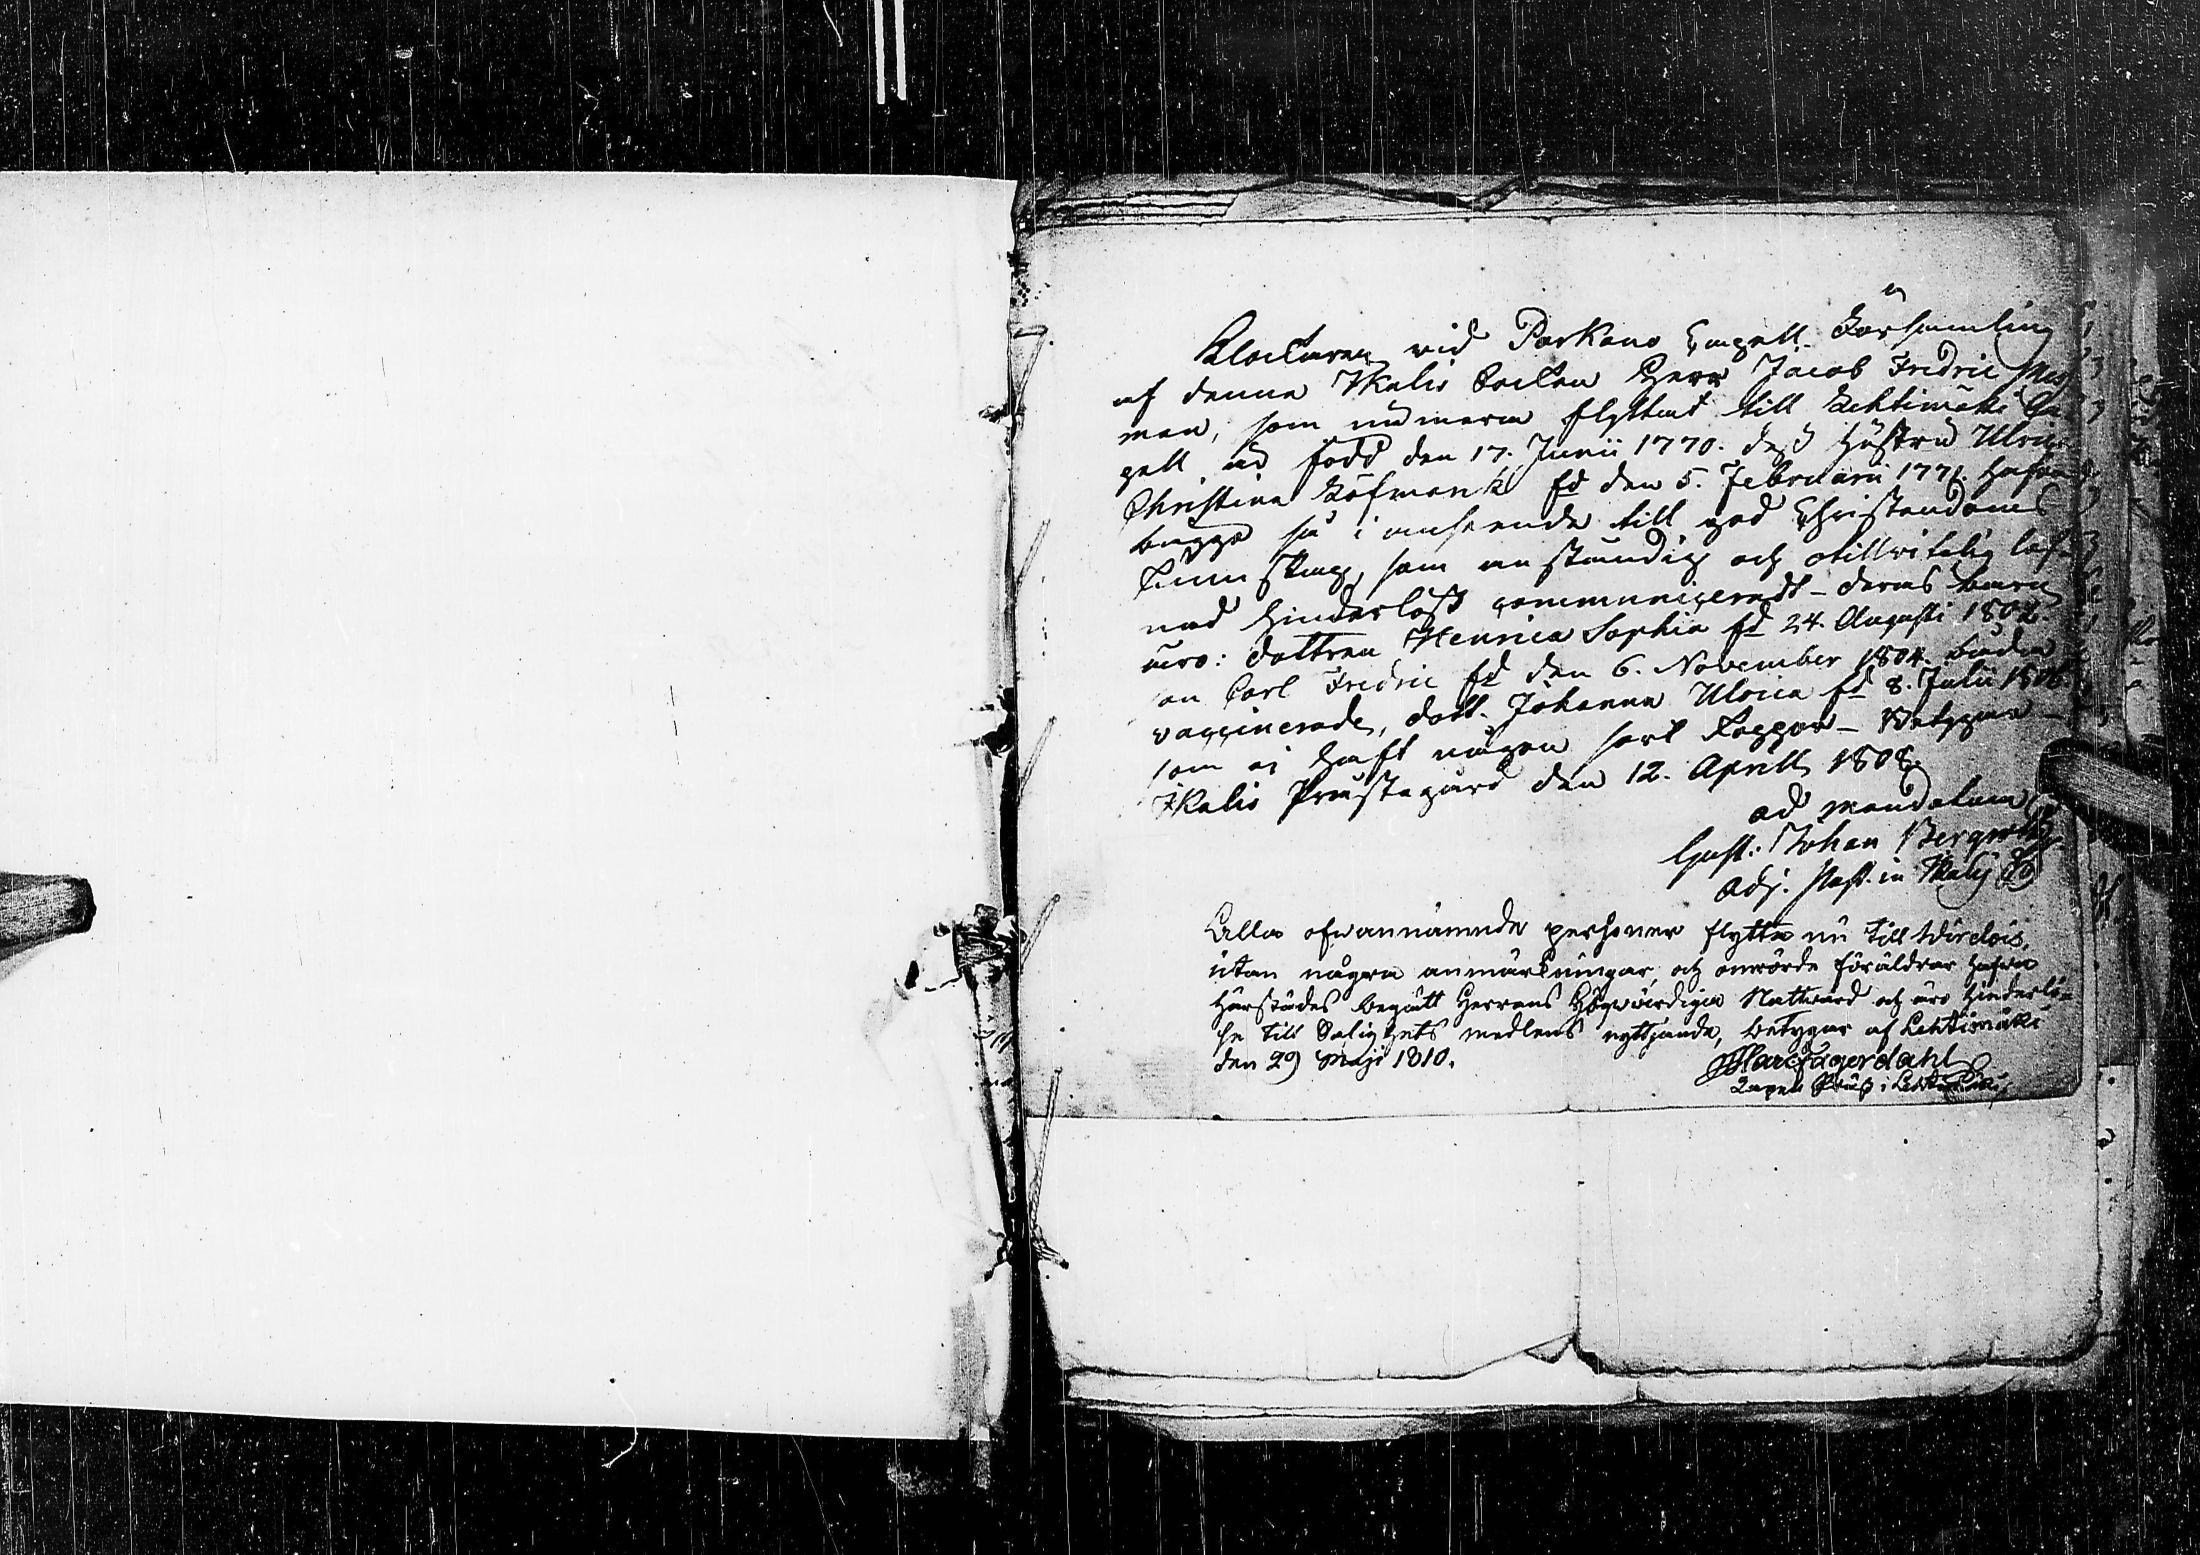 Klockaren vid Parkano Capell Församling
af denna Ikalis Socken Herr Jacob Fredric
man, som numera flyttat till Lehtimäki Ca-
pell är född den 17. Junii 1770. dess Hustru Ulrica
Christina Löfmark fd den 5. Februarii 1771. hafva
bägge så i anseende till god Christendoms
kunskap, som anständig och otillvitelig lef-
nad hinderlöst communicerat – deras barn
äro: dottren Henrica Sophia fd 24. Augusti 1802.
son Carl Fredric fd den 6. November 1804. båda
vaccinerade, dott. Johanna Ulrica fd 8. Julii 1806
som ej haft någon sort koppor – Betygar –
Ikalis Prästegård den 12. Aprill 1808.
ad mandatum
Gust. Johan Bergroth
Adj. Past. in Ikalis
Alla ofwannämnde personer flytta nu till Wirdois,
utan några anmärkningar, och omrörde föräldrar hafva
härstädes begått Herrans Högwärdiga Nattward och äro hinderlö-
se till Salighets medlens nyttjande, betygar af Lehtimäki
den 29 Maji 1810.
Marc: Fagerdahl
Capell Präst i Lehtimäki